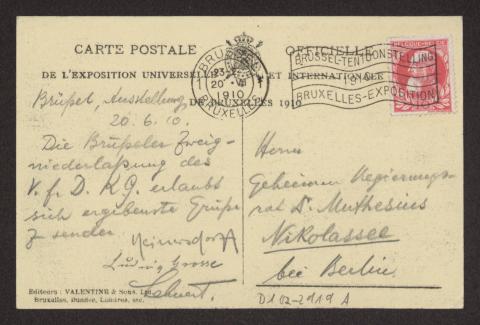 CARTE POSTALE OFFICIELLE
DE L'EXPOSITION UNIVERSELLE ET INTERNATIONALE
DE BRUXELLES 1910
BRUXELLES
1910
BRUXELLES
BRUSSEL-TENTOONSTELLING
1910
BRUXELLES-EXPOSITION
Brüssel, Ausstellung
20.6.10.
Die Brüsseler Zweig-
niederlassung des
V. f. D. K. G. erlaubt
sich ergebenste Grüße
z senden.
Ludwig Grosse
Herrn
Geheimen Regierungs-
rat Dr. Muthesius
Nikolassee
bei Berlin.
Editeurs: VALENTINE & Sons. Ltd.
Bruxelles, Dundee, Londres, etc.
D102-2919 A